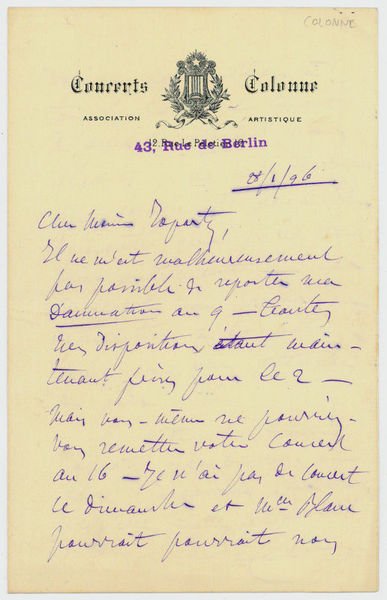 COLONNE
Concerts Colonne
ASSOCIATION ARTISTIQUE
43, Rue de Berlin
8/1/96
Cher Ropartz,
Il ne m'est malheureusement
pas possible de reporter ma
Damnation au 9 – toutes
mes disposition étant main-
tenant prises pour le 2 –
Mais vous-même ne pourriez-
vous remettre votre Concert
au 16 – Je n'ai pas de concert
ce dimanche et Mlle
pourrait pourrait nous